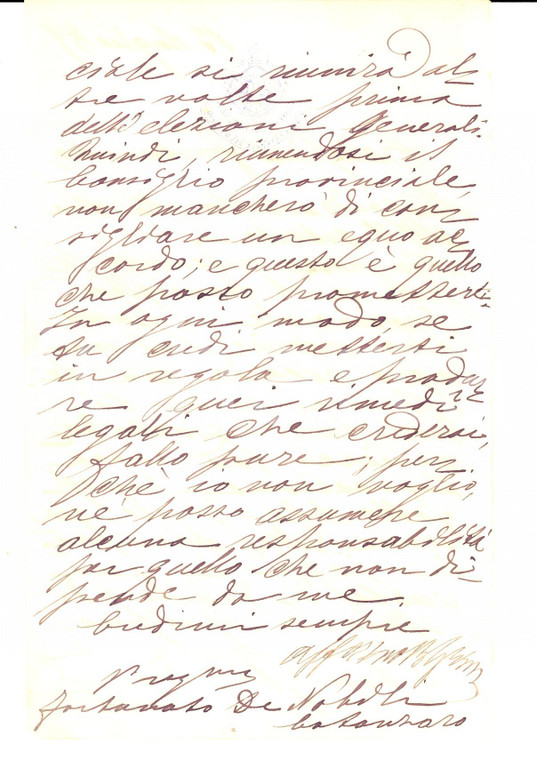 ciale si riunirà al-
tre volte prima
delle elezioni generali.
Quindi, riunendosi il
Consiglio provinciale,
non mancherò di con-
sigliare un equo ac-
cordo; e questo è quello
che posso prometterti.
In ogni modo, se
tu credi metterti
in regola e produr-
re quei rimedi
legali che crederai,
fallo pure; per-
chè io non voglio,
nè posso assumere
alcuna responsabilità
per quello che non di-
pende da me
Credimi sempre
aff.mo
Fortunato De Nobili
Catanzaro